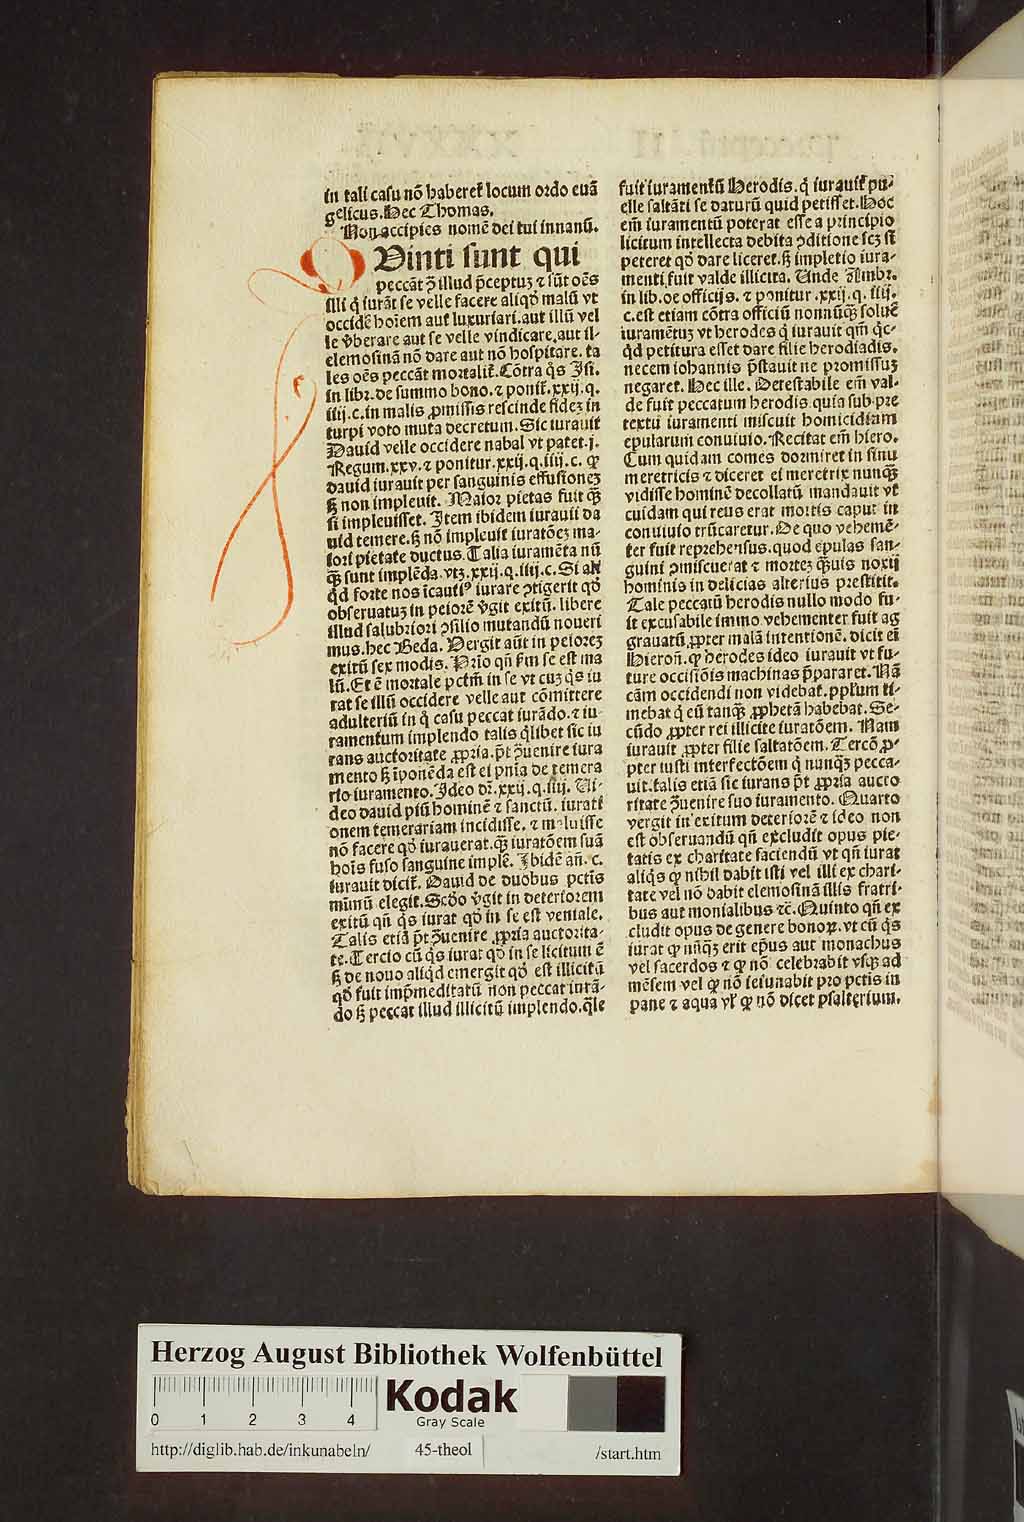 in tali casu nō haberet locum ordo euā
gelicus. Hec Thomas.
Non accipies nomē dei tui in nanū.
Vinti sunt qui
peccāt ꝯ̄ illud p̄ceptuʒ ⁊ sūt oēs
illi q̇ iurāt se velle facere aliqḋ malū vt
occidē hoīem aut luxuriari. aut illū vel
le v̓berare aut se velle vindicare. aut il-
elemosinā nō dare aut nō hospitare. ta
les oēs peccāt mortalit̄. Cōtra q̇s Isi.
in libr. de summo bono. ⁊ ponit̄. xxij. q.
iiij. c. in malis ꝓmissis rescinde fideʒ in
turpi voto muta decretum. Sic iurauit
Dauid velle occidere nabal vt patet. j.
Regum. xxv. ⁊ ponitur. xxij. q. iiij. c. ꝙ
dauid iurauit per sanguinis effusioneʒ
ſʒ non impleuit. Maior pietas fuit qͣʒ
si impleuisset. Item ibidem iurauit da
uid temere. ſʒ nō impleuit iuratōeʒ ma-
iori pietate ductus. Talia iuramēta nū
qͣʒ sunt implēda. vtʒ. xxij. q. iiij. c. Si ali
qḋ forte nos īcautiꝰ iurare ꝯtigerit qḋ
obseruatuʒ in peiorē v̓git exitū. libere
illud salubriori ꝯsilio mutandū noueri
mus. hec Beda. Vergit aūt in peioreʒ
exitū sex modis. Prīo qn̄ ẜm se est ma
lū. Et ē mortale pctm̄ in se vt cuʒ q̇s iu
rat se illū occidere velle aut cōmittere
adulteriū in q̇ casu peccat iurādo. ⁊ iu-
ramentum implendo talis q̇libet sic iu
rans auctoritate ꝓpria. p̄t ꝯ̄uenire iura
mento ſʒ īponēda est ei pn̄ia de temera
rio iuramento. Ideo dr̄. xxij. q. iiij. Vi-
deo dauid piū hominē ⁊ sanctū. iurati
onem temerariam incidisse. ⁊ maluisse
nō facere qḋ iurauerat. qͣʒ iuratōem suā
hoīs fuso sanguine implē. Ibidē an̄. c.
iurauit dicit̄. Dauid de duobus pctīs
minū elegit. Scḋo v̓git in deteriorem
exitū qn̄ q̇s iurat qḋ in se est veniale.
Talis etiā p̄t ꝯ̄uenire ꝓpria auctorita-
te. Tercio cū q̇s iurat qḋ in se licitum ē
ſʒ de nouo aliqḋ emergit qḋ est illicitū
qḋ fuit imp̄meditatū non peccat iurā-
do ſʒ peccat illud illicitū implendo. q̄le
fuit iuramentū Herodis. q̇ iurauit pu-
elle saltāti se daturū quid petisset. Hoc
em̄ iuramentū poterat esse a principio
licitum intellecta debita ꝯditione scʒ si
peteret qḋ dare liceret. ſʒ impletio iura-
menti fuit valde illicita. Unde Ambr.
in lib. de officijs. ⁊ ponitur. xxij. q. iiij.
c. est etiam cōtra officiū nonnūqͣʒ soluē
iuramētuʒ vt herodes q̇ iurauit qm̄ q̇c-
qḋ petitura esset dare filie herodiadis.
necem iohannis p̄stauit ne promissuʒ
negaret. Hec ille. Detestabile em̄ val-
de fuit peccatum herodis. quia sub pre
textu iuramenti miscuit homicidiam
epularum conuiuio. Recitat em̄ hiero.
Cum quidam comes dormiret in sinu
meretricis ⁊ diceret ei meretrix nunqͣʒ
vidisse hominē decollatū mandauit vt
cuidam qui reus erat mortis caput in
conuiuio trūcaretur. De quo vehemē-
ter fuit reprehensus. quod epulas san-
guini ꝯmiscuerat ⁊ morteʒ qͣuis noxij
hominis in delicias alterius prestitit.
Tale peccatū herodis nullo modo fu-
it excusabile immo vehementer fuit ag
grauatū. ꝓpter malā intentionē. dicit ei
Hieron̄. ꝙ herodes ideo iurauit vt fu-
ture occisiōis machinas p̄pararet. Nā
cām occidendi non videbat. pp̄lum ti-
mebat q̇ eū tanqͣʒ ꝓphetā habebat. Se-
cūdo ꝓpter rei illicite iuratōem. Nam
iurauit ꝓpter filie saltatōem. Tercō ꝓ-
pter iusti interfectōem q̇ nunqͣʒ pecca-
uit. talis etiā sic iurans p̄t ꝓpria aucto
ritate ꝯ̄uenire suo iuramento. Quarto
vergit in exitum deteriorē ⁊ ideo non
est obseruandū qn̄ excludit opus pie-
tatis ex charitate faciendū vt qn̄ iurat
aliq̇s ꝙ nihil dabit isti vel illi ex chari-
tate vel nō dabit elemosinā illis fratri-
bus aut monialibus ⁊c̄. Quinto qn̄ ex
cludit opus de genere bonoꝝ. vt cū q̇s
iurat ꝙ nūqͣʒ erit ep̄us aut monachus
vel sacerdos ⁊ ꝙ nō celebrabit vsqʒ ad
mēsem vel ꝙ nō ieiunabit pro pctīs in
pane ⁊ aqua vl̄ ꝙ nō dicet psalterium.
Herzog August Bibliothek Wolfenbüttel
0 1 2 3 4
Kodak
Gray Scale
http://diglib.hab.de/inkunabeln/ 45-theol /start.htm